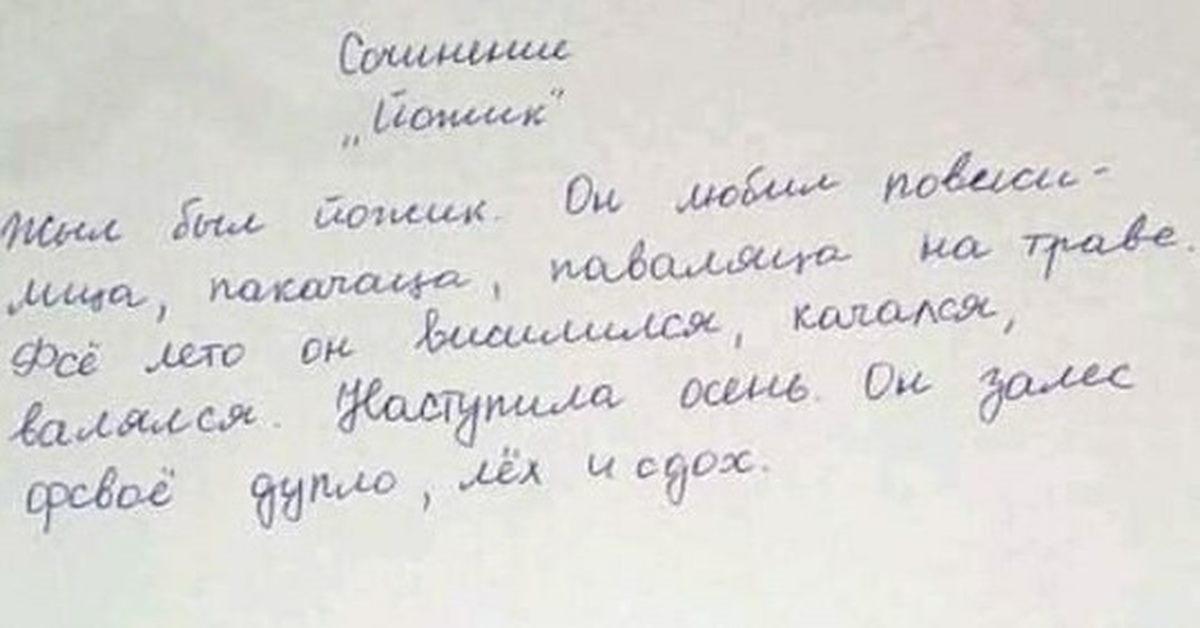 Сочинение
„Йожик"
Жыл был йожик. Он любил повиси-
лица, пакачаца, паваляца на траве.
Фсё лето он висилился, качался,
валялся. Наступила осень. Он залес
фсвоё дупло, лёх и сдох.